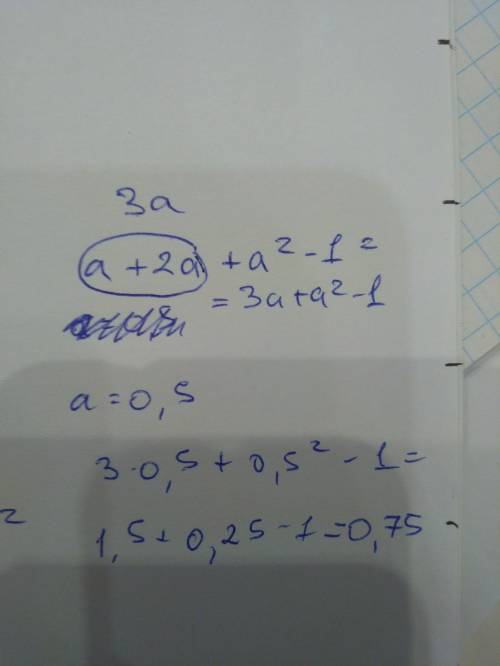 3a
a + 2a + a² - 1 =
= 3a + a² - 1
a = 0,5
3 · 0,5 + 0,5² - 1 =
1,5 + 0,25 - 1 = 0,75